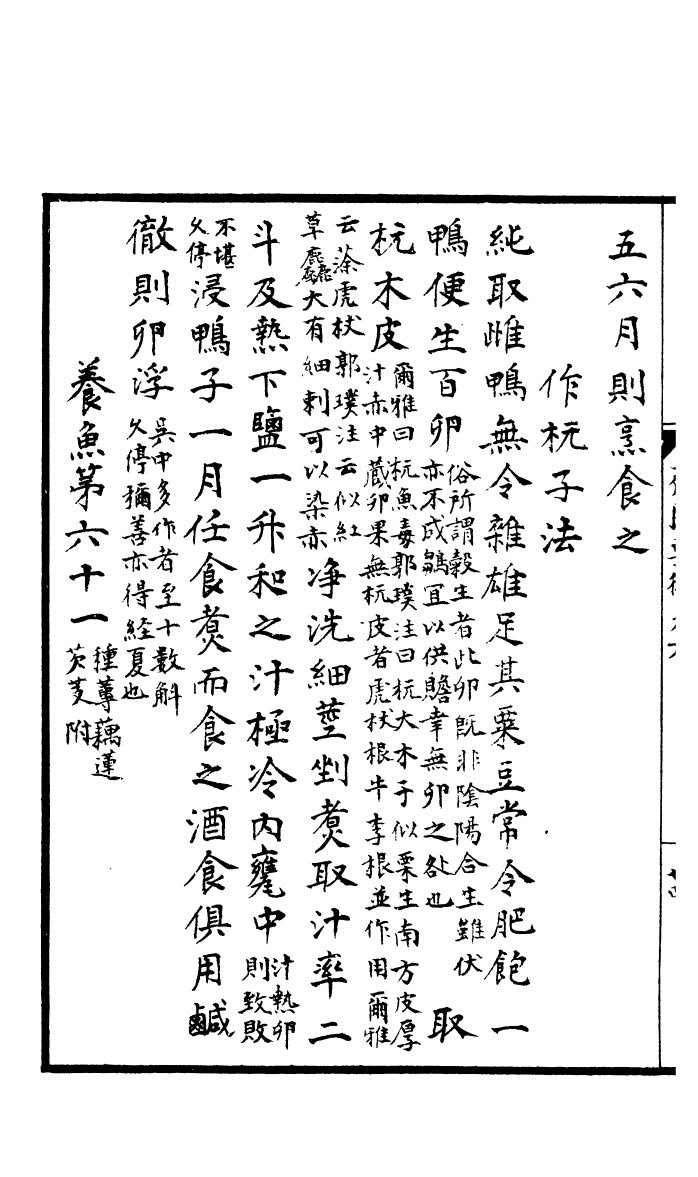 五六月則烹食之
作杬子法
純取雌鴨無令雜雄足其粟豆常令肥飽一
鴨便生百卵俗所謂穀生者此卵既非陰陽合生雖伏亦不成鶵冝以供贍幸無卵之咎也取
杬木皮爾雅曰杬魚毒郭璞注曰杬大木子似栗生南方皮厚汁赤中藏卵果無杬皮者虎杖根牛李根並作用爾雅
云蒤虎杖郭璞注云似紅草麤大有細刺可以染赤净洗細莖剉煑取汁率二
斗及熱下鹽一升和之汁極冷内甕中汁熱卵則致敗
不堪久停浸鴨子一月任食煑而食之酒食俱用鹹
徹則卵浮吳中多作者至十數斛久停彌善亦得経夏也
養魚第六十一種蓴藕蓮芡芰附